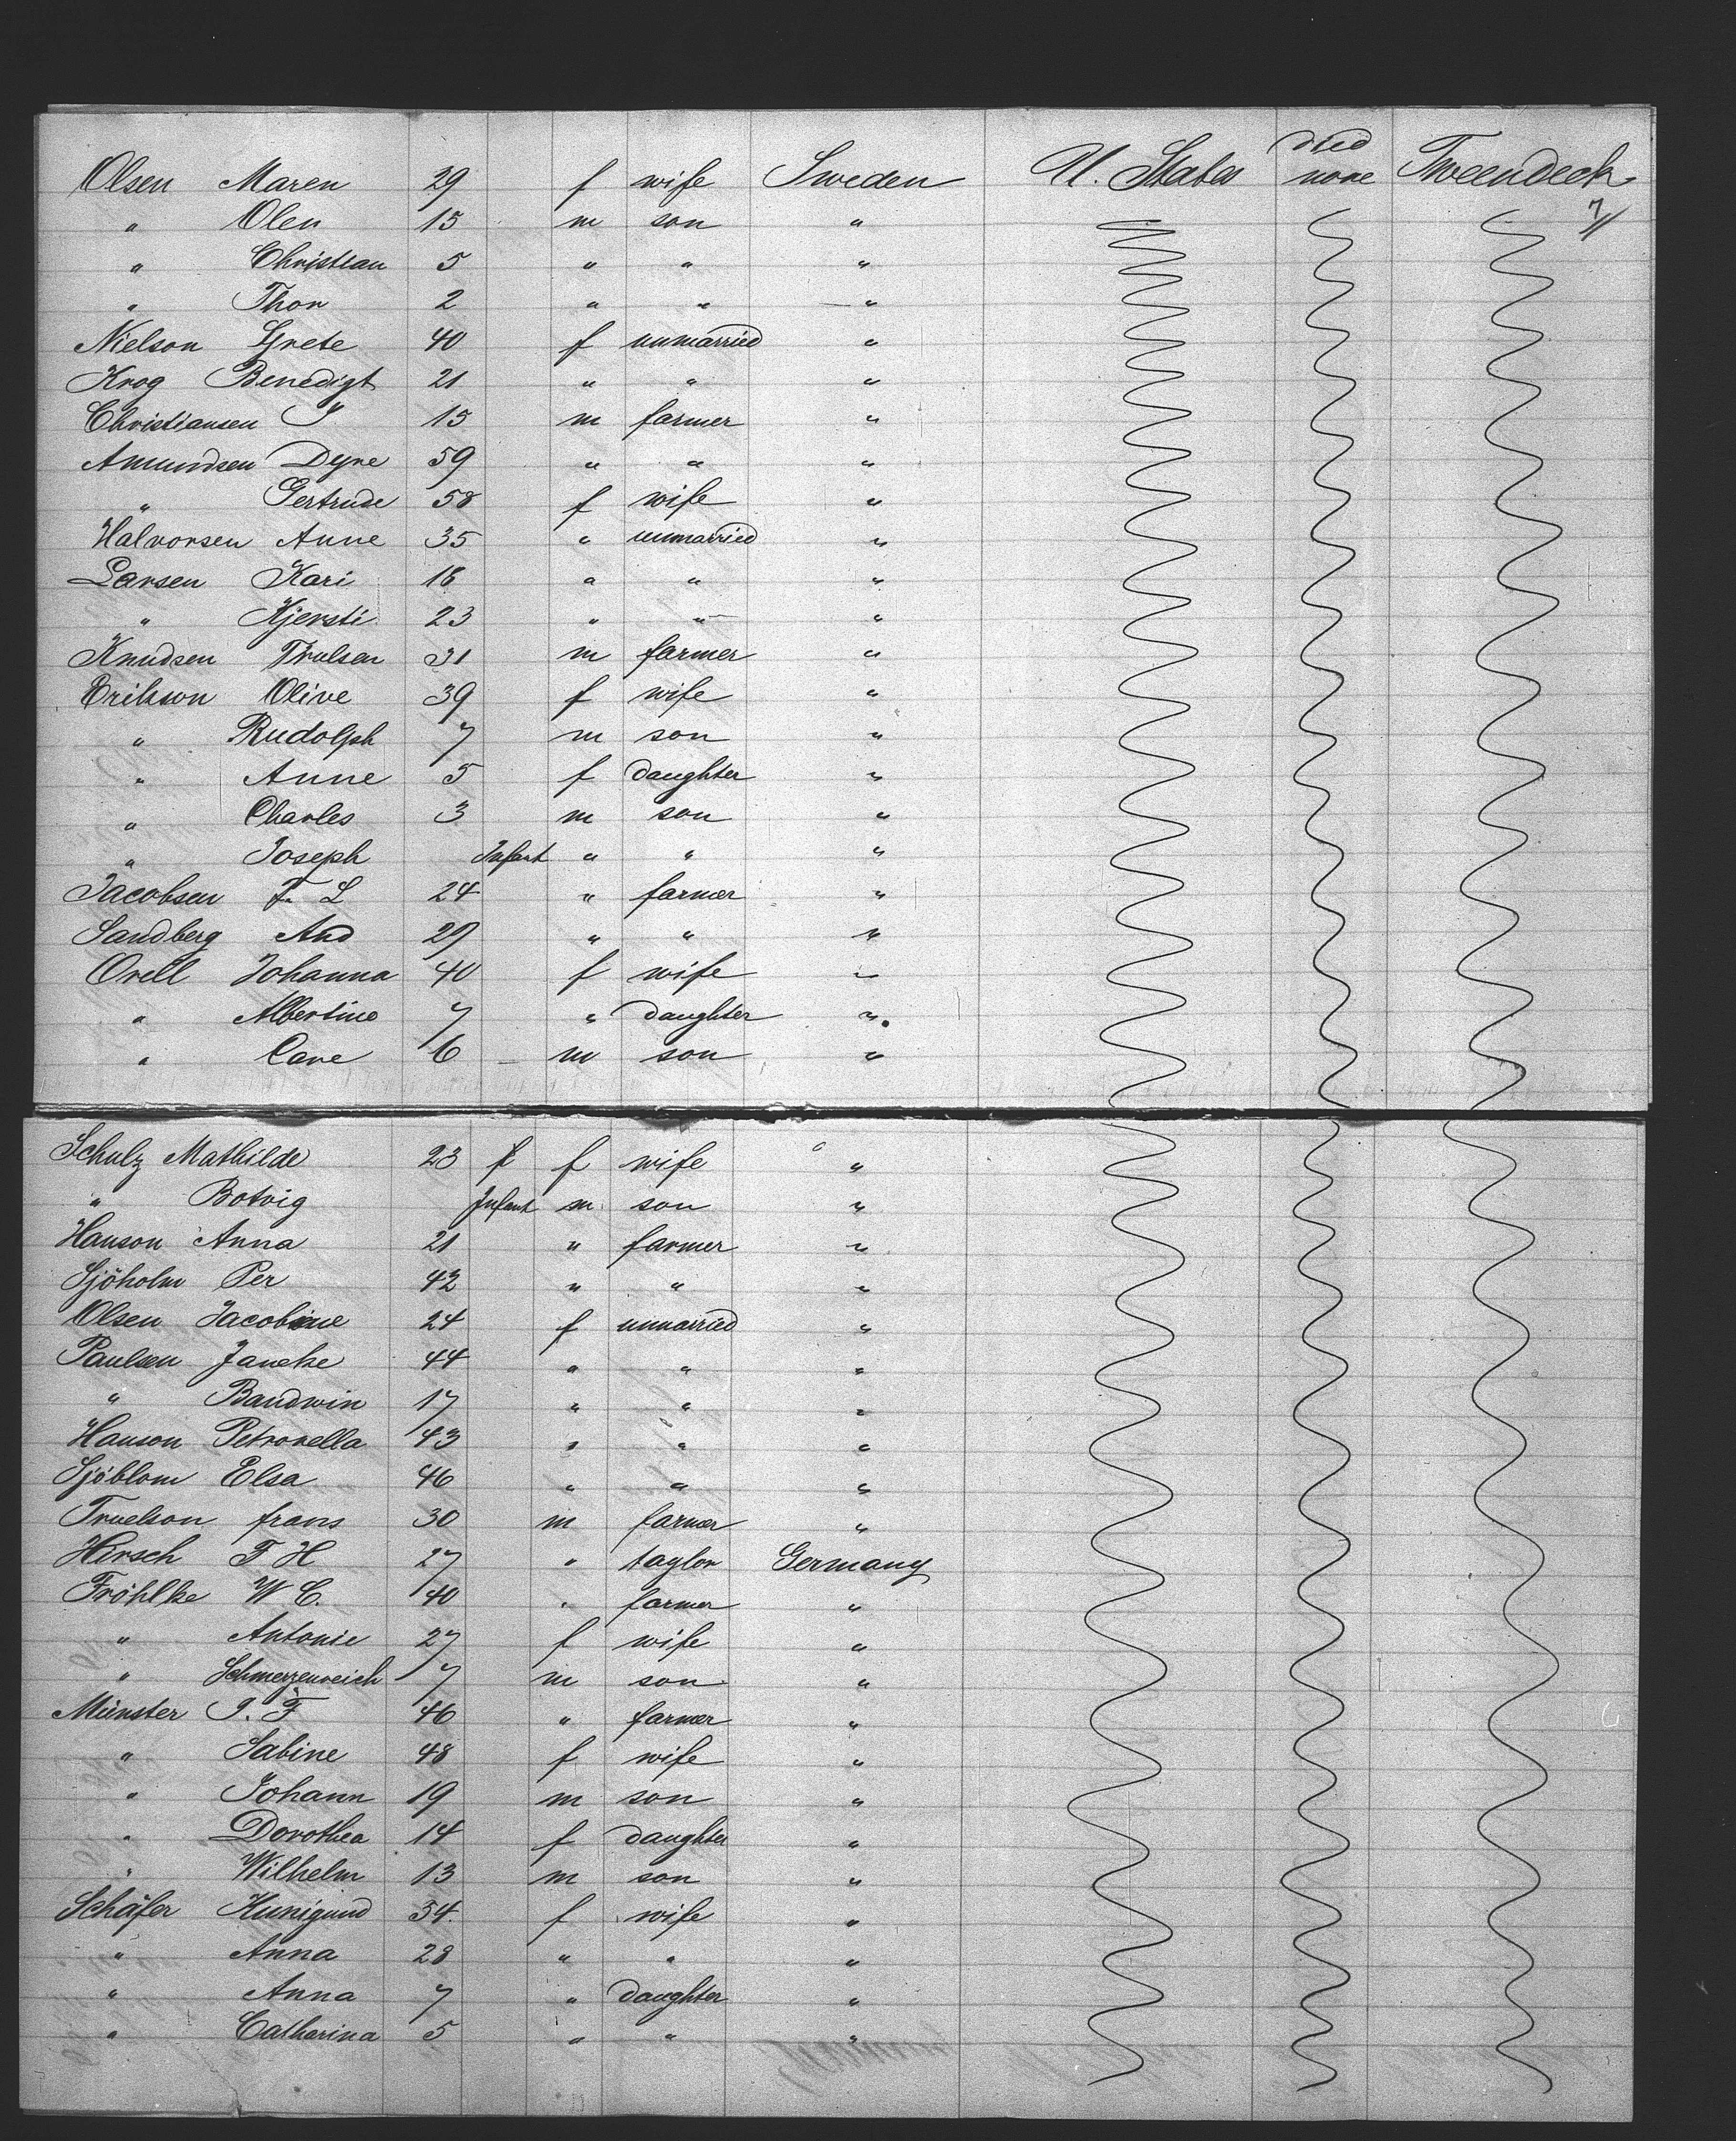 Olsen Maren 29 f wife Sweden U. States died none Tweendeck
" Olen 15 m son " 7
" Christian 5 " " "
" Thor 2 " " "
Nielson Grete 40 f unmarried "
Krog Benedigt 21 " " "
Christiansen J 15 m farmer "
Amundsen Dyre 59 " " "
" Gertrude 58 f wife "
Halvorsen Anne 35 " unmarried "
Larsen Kari 18 " " "
" Kjersti 23 " " "
Knudsen Trulsen 31 m farmer "
Erikson Olive 39 f wife "
" Rudolph 7 m son "
" Anne 5 f daughter "
" Charles 3 m son "
" Joseph Infant " " "
Jacobsen F. L 24 " farmer "
Sandberg And 29 " " "
Orell Johanna 40 f wife "
" Albertine 7 " daughter "
" Care 6 m son "
Schulz Mathilde 23 f f wife "
" Botvig Infant m son "
Hanson Anna 21 " farmer "
Sjöholm Per 42 " " "
Olsen Jacobine 24 f unmarried "
Paulsen Janeke 44 " " "
" Baudwin 17 " " "
Hanson Petronella 43 " " "
Sjöblom Elsa 46 " " "
Truelson frans 30 m farmer "
Hirsch F H 27 " taylor Germany
Fröhlke W C. 40 " farmer "
" Antonie 27 f wife "
" Schmerzenreich 7 m son "
Münster J. F 46 " farmer "
" Sabine 48 f wife "
" Johann 19 m son "
" Dorothea 14 f daughter "
" Wilhelm 13 m son "
Schäfer Kunigund 34. f wife "
" Anna 28 " " "
" Anna 7 " daughter "
" Catharina 5 " " "